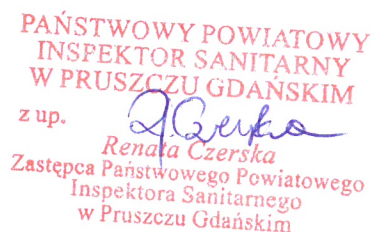 PAŃSTWOWY POWIATOWY
INSPEKTOR SANITARNY
W PRUSZCZU GDAŃSKIM
z up.
R.Czerska
Renata Czerska
Zastępca Państwowego Powiatowego
Inspektora Sanitarnego
w Pruszczu Gdańskim